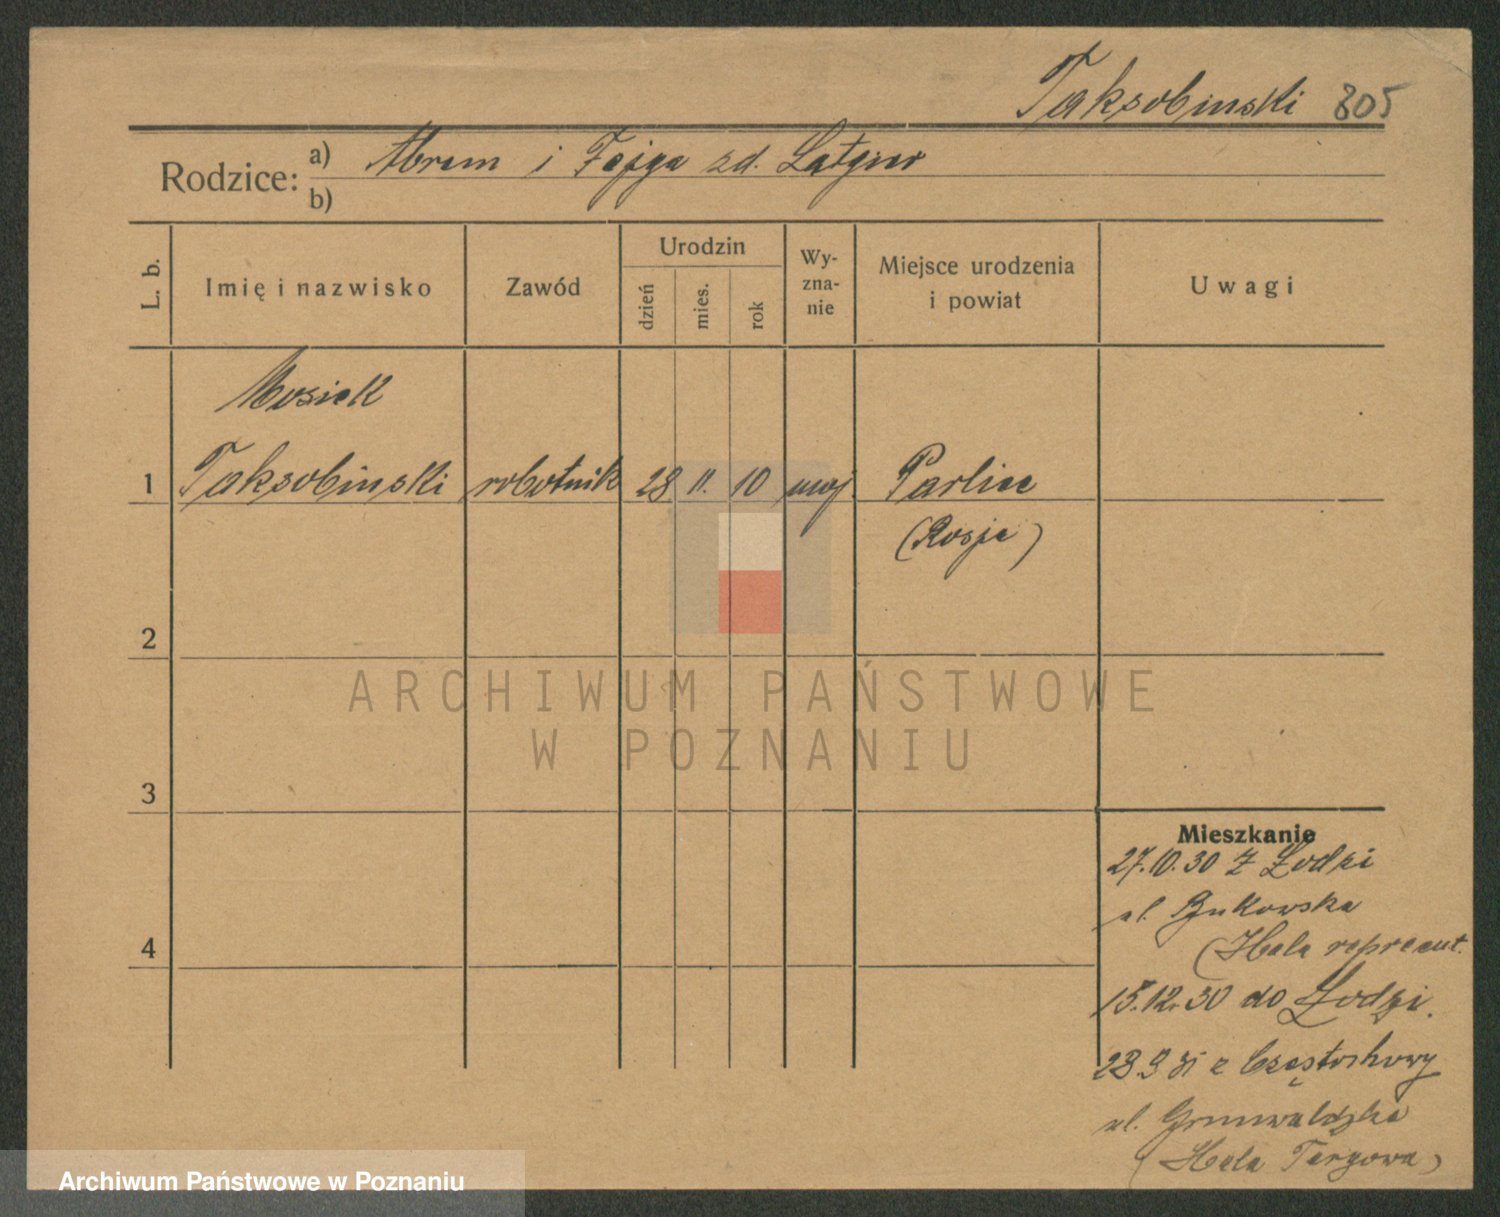 Taksobinski 805
Rodzice: a) Abram i Fajga zd. Latgier
b)
L. b. Imię i nazwisko Zawód Urodzin dzień mies. rok Wy-zna-nie Miejsce urodzenia i powiat Uwagi
Mosiek
1 Taksobinski robotnik 28 11. 10 moj. Parlice
(Rosja)
2
ARCHIWUM PAŃSTWOWE
W POZNANIU
3
Mieszkanie
27.10.30 z Łodzi
ul. Bukowska
4
(Hala reprezent.
15.12.30 do Łodzi.
28.9 31 z Częstochowy
ul. Grunwaldzka
(Hala Targowa)
Archiwum Państwowe w Poznaniu